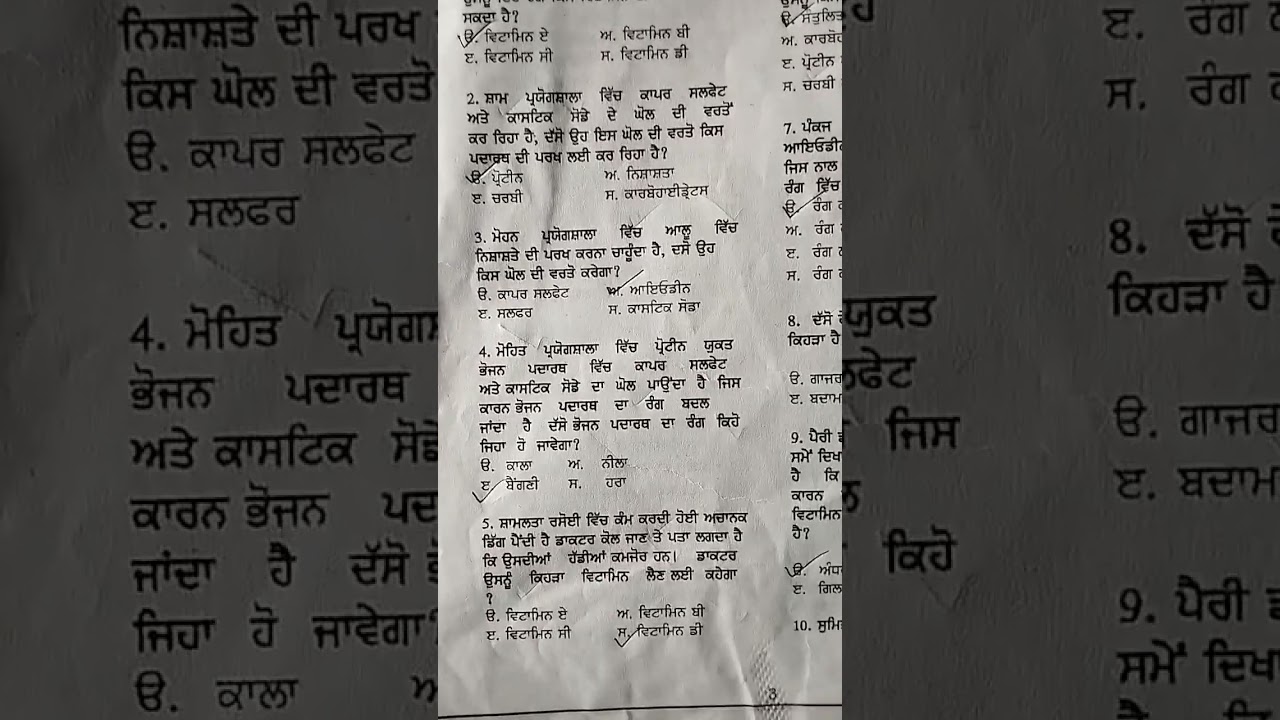 ਸਕਦਾ ਹੈ?
ੳ. ਵਿਟਾਮਿਨ ਏ ਅ. ਵਿਟਾਮਿਨ ਬੀ
ੲ. ਵਿਟਾਮਿਨ ਸੀ ਸ. ਵਿਟਾਮਿਨ ਡੀ
2. ਸ਼ਾਮ ਪ੍ਰਯੋਗਸ਼ਾਲਾ ਵਿੱਚ ਕਾਪਰ ਸਲਫੇਟ
ਅਤੇ ਕਾਸਟਿਕ ਸੋਡੇ ਦੇ ਘੋਲ ਦੀ ਵਰਤੋਂ
ਕਰ ਰਿਹਾ ਹੈ, ਦੱਸੋ ਉਹ ਇਸ ਘੋਲ ਦੀ ਵਰਤੋ ਕਿਸ
ਪਦਾਰਥ ਦੀ ਪਰਖ ਲਈ ਕਰ ਰਿਹਾ ਹੈ?
ੳ. ਪ੍ਰੋਟੀਨ ਅ. ਨਿਸ਼ਾਸ਼ਤਾ
ੲ. ਚਰਬੀ ਸ. ਕਾਰਬੋਹਾਈਡ੍ਰੇਟਸ
3. ਮੋਹਨ ਪ੍ਰਯੋਗਸ਼ਾਲਾ ਵਿੱਚ ਆਲੂ ਵਿੱਚ
ਨਿਸ਼ਾਸ਼ਤੇ ਦੀ ਪਰਖ ਕਰਨਾ ਚਾਹੁੰਦਾ ਹੈ, ਦਸੋ ਉਹ
ਕਿਸ ਘੋਲ ਦੀ ਵਰਤੋ ਕਰੇਗਾ?
ੳ. ਕਾਪਰ ਸਲਫੇਟ ਅ. ਆਇਓਡੀਨ
ੲ. ਸਲਫਰ ਸ. ਕਾਸਟਿਕ ਸੋਡਾ
4. ਮੋਹਿਤ ਪ੍ਰਯੋਗਸ਼ਾਲਾ ਵਿੱਚ ਪ੍ਰੋਟੀਨ ਯੁਕਤ
ਭੋਜਨ ਪਦਾਰਥ ਵਿੱਚ ਕਾਪਰ ਸਲਫੇਟ
ਅਤੇ ਕਾਸਟਿਕ ਸੋਡੇ ਦਾ ਘੋਲ ਪਾਉਂਦਾ ਹੈ ਜਿਸ
ਕਾਰਨ ਭੋਜਨ ਪਦਾਰਥ ਦਾ ਰੰਗ ਬਦਲ
ਜਾਂਦਾ ਹੈ ਦੱਸੋ ਭੋਜਨ ਪਦਾਰਥ ਦਾ ਰੰਗ ਕਿਹੋ
ਜਿਹਾ ਹੋ ਜਾਵੇਗਾ?
ੳ. ਕਾਲਾ ਅ. ਨੀਲਾ
ੲ ਬੈਂਗਣੀ ਸ. ਹਰਾ
5. ਸ਼ਾਮਲਤਾ ਰਸੋਈ ਵਿੱਚ ਕੰਮ ਕਰਦੀ ਹੋਈ ਅਚਾਨਕ
ਡਿੱਗ ਪੈਂਦੀ ਹੈ ਡਾਕਟਰ ਕੋਲ ਜਾਣ ਤੇ ਪਤਾ ਲਗਦਾ ਹੈ
ਕਿ ਉਸਦੀਆਂ ਹੱਡੀਆਂ ਕਮਜੋਰ ਹਨ। ਡਾਕਟਰ
ਉਸਨੂੰ ਕਿਹੜਾ ਵਿਟਾਮਿਨ ਲੈਣ ਲਈ ਕਹੇਗਾ
?
ੳ. ਵਿਟਾਮਿਨ ਏ ਅ. ਵਿਟਾਮਿਨ ਬੀ
ੲ. ਵਿਟਾਮਿਨ ਸੀ ਸ. ਵਿਟਾਮਿਨ ਡੀ
ੳ.
ਅ.
ੲ. ਪ੍ਰੋਟੀਨ
ਸ. ਚਰਬੀ
7. ਪੰਕਜ
ਜਿਸ ਨਾਲ
ਰੰਗ ਵਿੱਚ
ੳ. ਰੰਗ
ਅ. ਰੰਗ
ੲ. ਰੰਗ
ਸ. ਰੰਗ
8. ਦੱਸੋ
ਕਿਹੜਾ ਹੈ
ੳ. ਗਾਜਰ
ੲ. ਬਦਾਮ
9. ਪੈਰੀ
ਸਮੇਂ ਦਿਖ
ਹੈ ਕਿ
ਕਾਰਨ
ਵਿਟਾਮਿਨ
ਹੈ?
ੳ.
ੲ.
10.
3